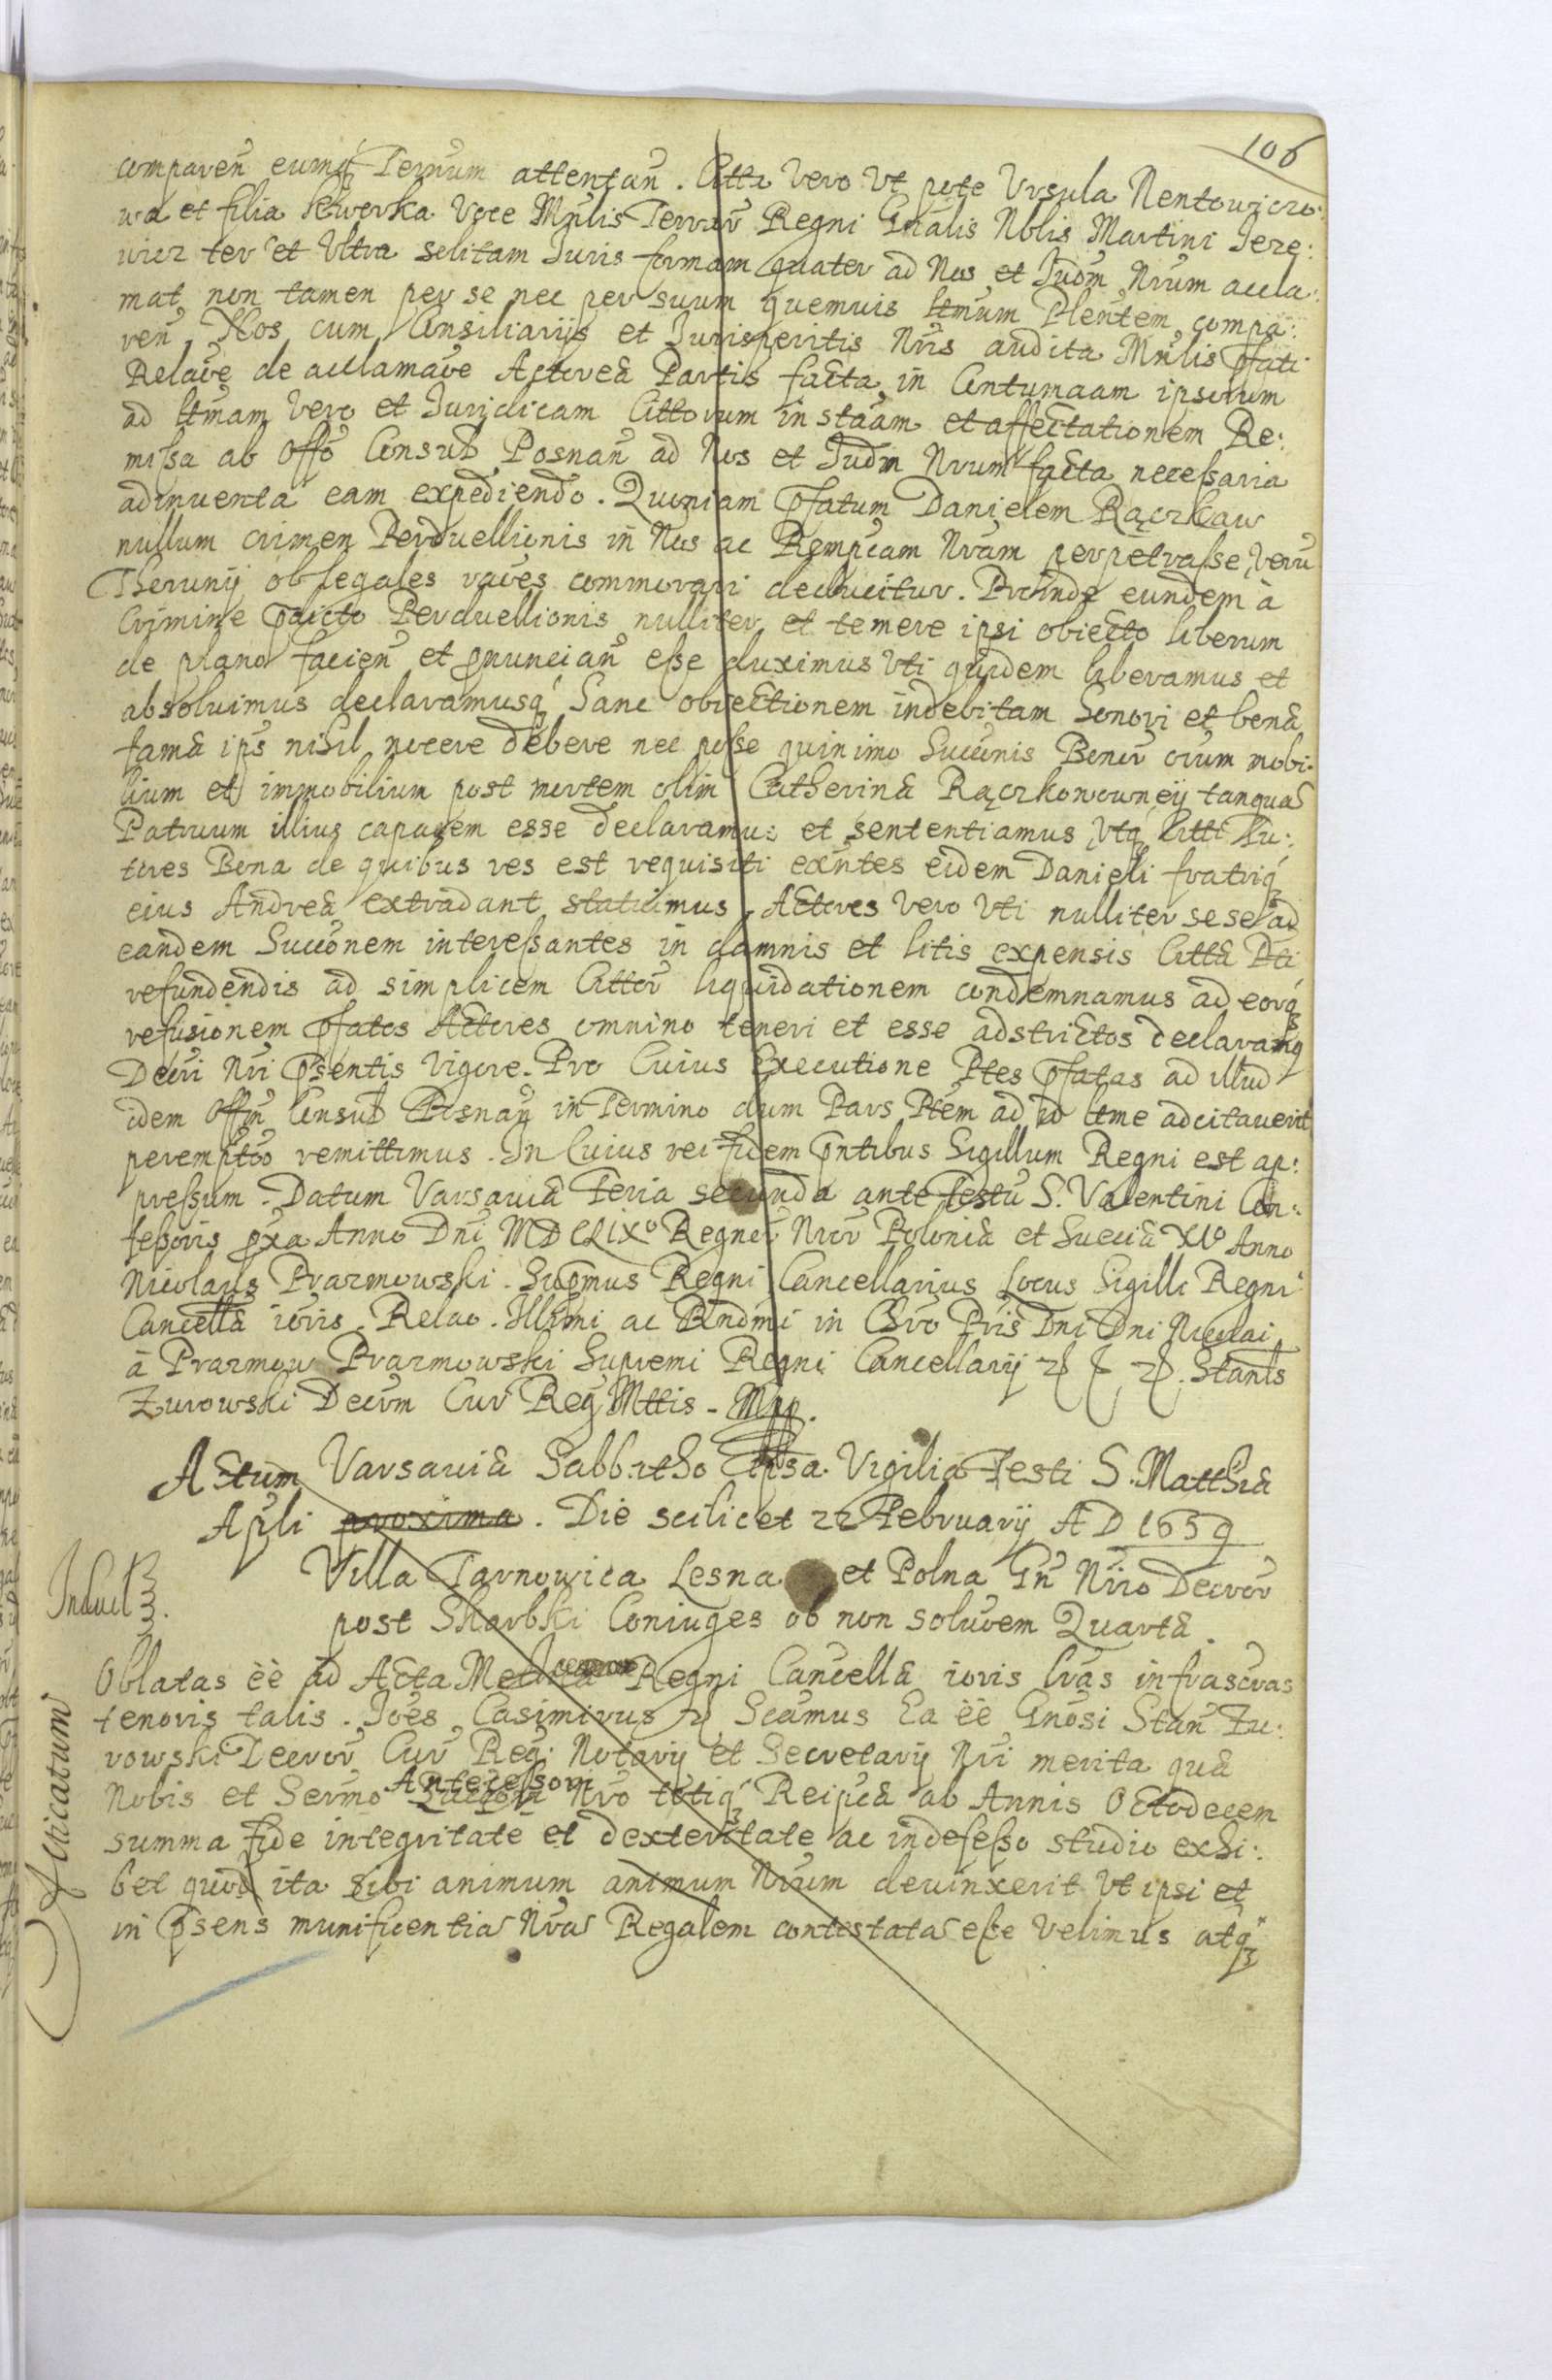 106
comparen eumq Ternum attentan. Citti Vero Vt pote Vrsula Nentowiczo:
wa et filia Kewerka Voce Mnlis Terrar Regni Gnalis Nblis Martini Jerę:
wicz ter et Vltra solitam Juris formam quater ad Nos et Judm Nrum accla:
mat non tamen per se nec per suum quemuis ltmum Plentem compa:
ren. Nos cum Consiliarijs et Jurisperitis Nris audita Mnlis pfati
Relaõe de acclamaõe Actorea Partis facta in Contumaam ipsorum
ad ltmam Vero et Juridicam Cittorum instaam et affectationem Re:
missa ab Offo Consub Posnan ad Nos et Judm Nrum facta necessaria
adinuenta eam expediendo. Quoniam pfatum Danielem Rączkaw
nullum crimen Perduellionis in Nos ac Rempcam Nram perpetrasse, veru
Thorunij ob legales raões commorari deducitur. Proinde eundem à
Crimine pdicto Perduellionis nulliter et temere ipsi obiecto liberum
de plano facien et pnuncian esse duximus Vti quidem liberamus et
absoluimus declaramusq hanc obiectionem indebitam honori et bonæ
famæ ips nihil nocere debere nec posse quinimo Succonis Bonor oium mobi:
lium et immobilium post mortem olim Catherinæ Rączkowowneÿ tanqua
Patruum illius capacem esse declaramus et sententiamus Vtq Citti Tu:
tores Bona de quibus res est requisiti exntes eidem Danieli fratriq
eius Andreæ extradant statuimus. Actores Vero Vti nulliter se se ad
eandem Succonem interessantes in damnis et litis expensis Cittæ Pti
refundendis ad simplicem Cittor liquidationem condemnamus ad eorq
refusionem pfatos Actores omnino teneri et esse adstrictos declaramq
Decri Nri psentis Vigore. Pro Cuius Executione Ptes pfatas ad illud
idem Offm Consub Posnan in Termino dum Pars Ptem ad id ltme adcitauerit
peremptoo remittimus. In Cuius rei fidem pntibus Sigillum Regni est ap:
pressum. Datum Varsauiæ Feria secunda ante Festu S. Valentini Con:
fessoris pxa Anno Dni MDCLIXo Regnor Nror Poloniæ et Sueciæ XIo Anno
Nicolaus Prazmowski Supmus Regni Cancellarius Locus Sigilli Regni
Cancellæ ioris. Relao. Illmi ac Rndmi in Chro Pris Dni Dni Nicolai
à Prazmow Prazmowski Supremi Regni Cancellarij. Stanls
Zurowski Decrm Cur Reg Mttis - Mpp.
Actum Varsauiæ Sabbatho ipsa Vigilia Festi S. Matthiæ
Apli proxima. Die scilicet 22 February A D 1659
Indult
Villa Tarnowica Lesna et Polna Gn Niro Decror
post Skarbki Coniuges ob non soluõem Quartæ.
Vlicatum
Oblatas èè ad Acta Regni Cancellæ ioris Lras infrascras
tenoris talis. Joes Casimirus Scamus Ea èè Gnosi Stan Zu:
rowski Decror Cur Reg: Notarij et Secretarij Nri merita quæ
Nobis et Sermo Antecessori Nro totiq Reipcæ ab Annis Octodecem
summa fide integritate et dexteritate ac indefesso studio exhi:
bet quod ita sibi animum animum Nrum deuinxerit Vt ipsi et
in psens munificentia Nra Regalem contestata esse Velimus atq